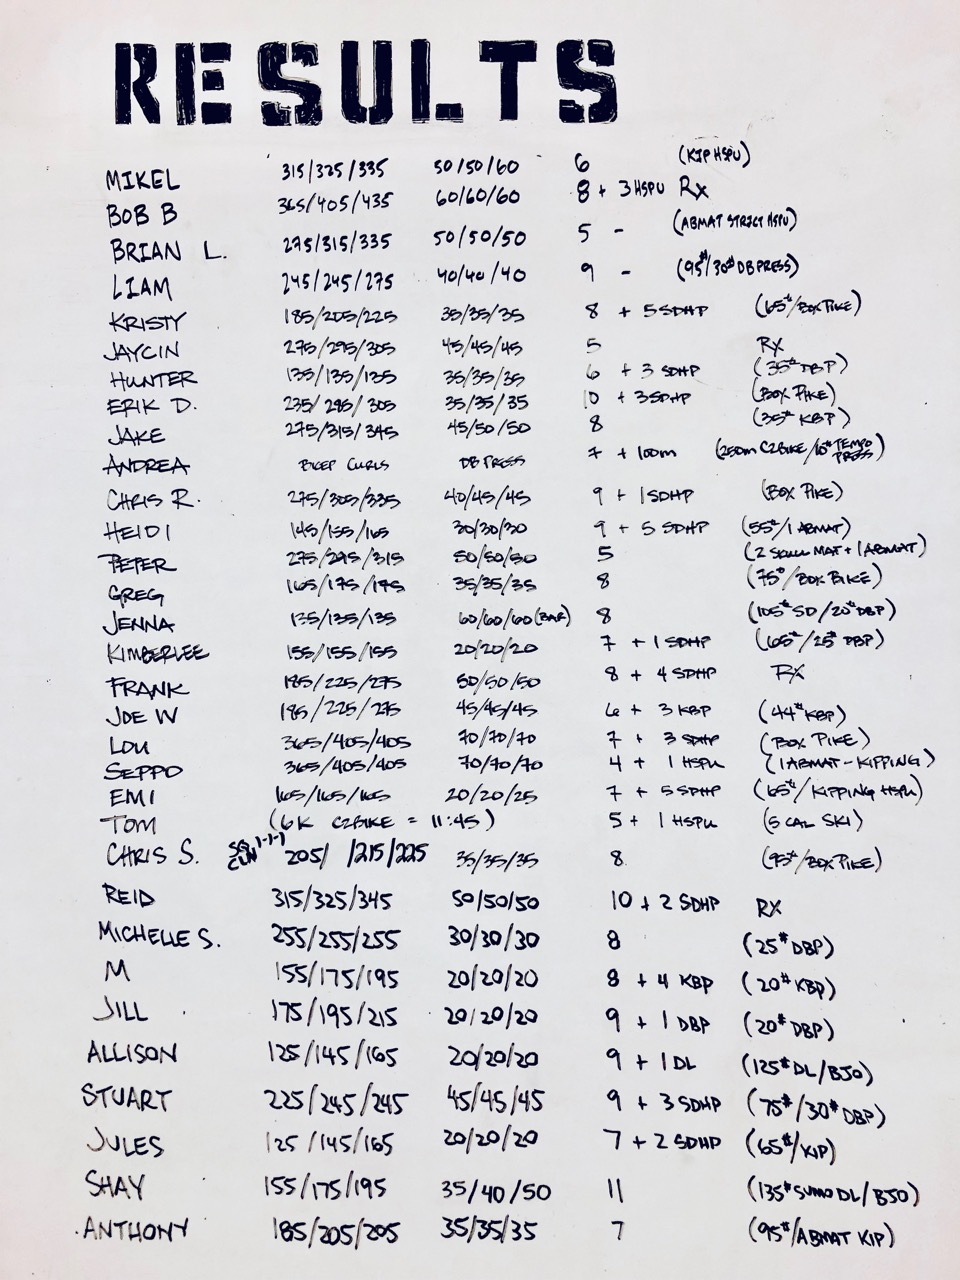 RESULTS
MIKEL 315/325/335 50/50/60 6 (KIP HSPU)
BOB B 365/405/435 60/60/60 8 + 3 HSPU RX
BRIAN L. 275/315/335 50/50/50 5 - (ABMAT STRICT HSPU)
LIAM 245/245/275 40/40/40 9 - (95#/30# DB PRESS)
KRISTY 185/205/225 35/35/35 8 + 5 SDHP (65#/BOX PIKE)
JAYCIN 275/295/305 45/45/45 5 RX
HUNTER 135/135/135 35/35/35 6 + 3 SDHP (35# DBP)
ERIK D. 235/295/305 35/35/35 10 + 3 SDHP (BOX PIKE)
JAKE 275/315/345 45/50/50 8 (35# KBP)
ANDREA BICEP CURLS DB PRESS 7 + 100m (250m C2BIKE/10# TEMPO PRESS)
CHRIS R. 275/305/335 40/45/45 9 + 1 SDHP (BOX PIKE)
HEIDI 145/155/165 30/30/30 9 + 5 SDHP (55#/1 ABMAT)
PETER 275/295/315 50/50/50 5 (2 SKULL MAT + 1 ABMAT)
GREG 165/175/195 35/35/35 8 (75#/BOX BIKE)
JENNA 135/135/135 60/60/60 (BAR) 8 (105# SD/20# DBP)
KIMBERLEE 155/155/155 20/20/20 7 + 1 SDHP (65#/25# DBP)
FRANK 185/225/275 50/50/50 8 + 4 SDHP RX
JOE W 185/225/275 45/45/45 6 + 3 KBP (44# KBP)
LOU 365/405/405 70/70/70 7 + 3 SDHP (BOX PIKE)
SEPPO 365/405/405 70/70/70 4 + 1 HSPU (1 ABMAT - KIPPING)
EMI 165/165/165 20/20/25 7 + 5 SDHP (65#/KIPPING HSPU)
TOM (6K C2BIKE = 11:45) 5 + 1 HSPU (5 CAL SKI)
CHRIS S. SQ CLN 1-1-1 205/ /215/225 35/35/35 8 (95#/BOX PIKE)
REID 315/325/345 50/50/50 10 + 2 SDHP RX
MICHELLE S. 255/255/255 30/30/30 8 (25# DBP)
M 155/175/195 20/20/20 8 + 4 KBP (20# KBP)
JILL 175/195/215 20/20/20 9 + 1 DBP (20# DBP)
ALLISON 125/145/165 20/20/20 9 + 1 DL (125# DL/BJO)
STUART 225/245/245 45/45/45 9 + 3 SDHP (75#/30# DBP)
JULES 125/145/165 20/20/20 7 + 2 SDHP (65#/KIP)
SHAY 155/175/195 35/40/50 11 (135# SUMO DL/BJO)
ANTHONY 185/205/205 35/35/35 7 (95#/ABMAT KIP)